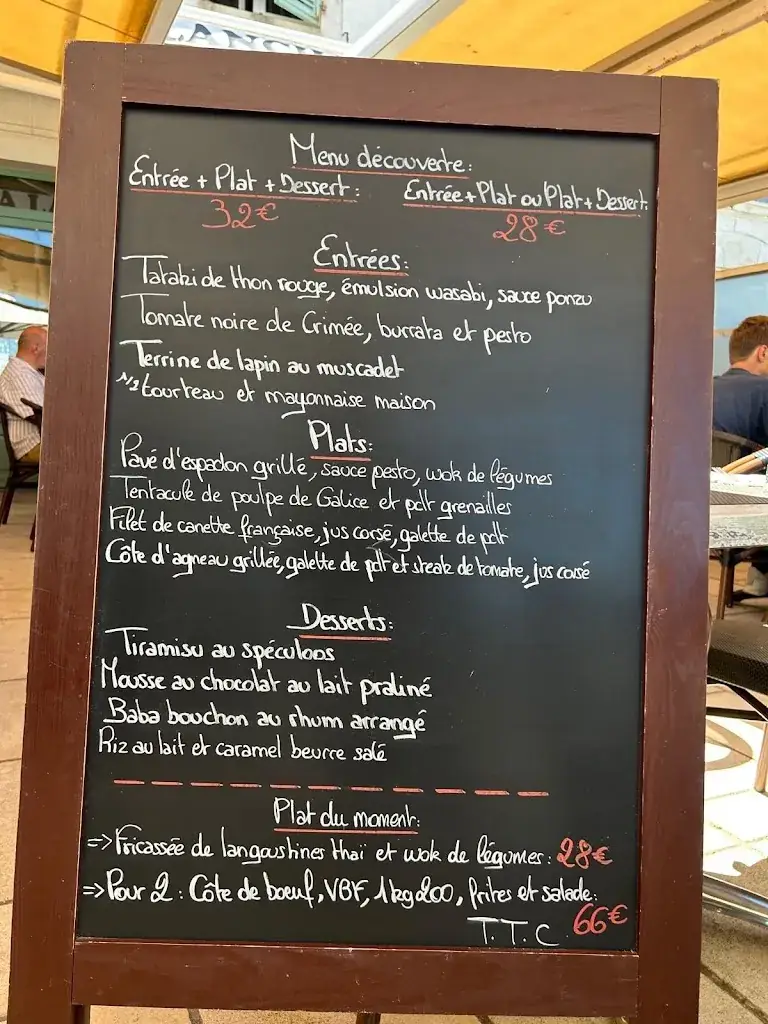 Menu découverte:
Entrée + Plat + Dessert: Entrée + Plat ou Plat + Dessert:
32€ 28€
Entrées:
Tataki de thon rouge, émulsion wasabi, sauce ponzu
Tomate noire de Crimée, burrata et pesto
Terrine de lapin au muscadet
1/2 tourteau et mayonnaise maison
Plats:
Pavé d'espadon grillé, sauce pesto, wok de légumes
Tentacule de poulpe de Galice et pdt grenailles
Filet de canette française, jus corsé, galette de pdt
Côte d'agneau grillée, galette de pdt et steak de tomate, jus corsé
Desserts:
Tiramisu au spéculoos
Mousse au chocolat au lait praliné
Baba bouchon au rhum arrangé
Riz au lait et caramel beurre salé
Plat du moment:
=> Fricassée de langoustines thaï et wok de légumes: 28€
=> Pour 2: Côte de boeuf, VBF, 1kg200, frites et salade:
66€
T.T.C